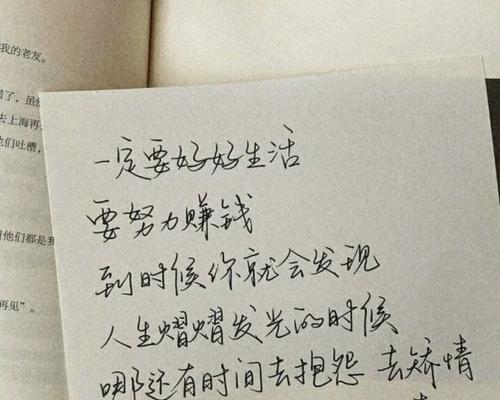 我的老友。
了，虽
去上海再
们吐槽，
他们都是
再见”。
一定要好好生活
要努力赚钱
到时候你就会发现
人生熠熠发光的时候
哪还有时间去抱怨 去矫情